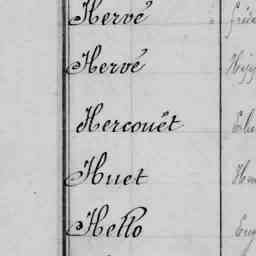 Hervé
Hervé
Hercouët
Huet
Hello